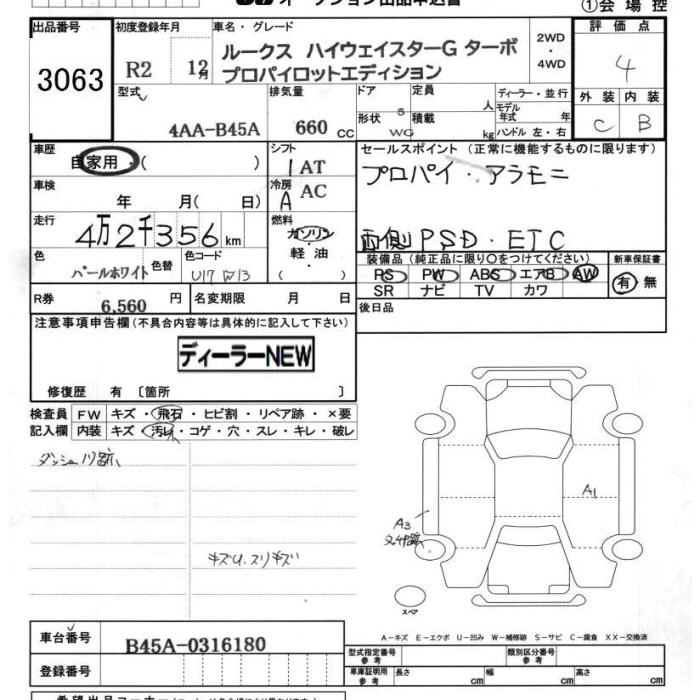 オークション出品申込書
①会場控
出品番号
3063
初度登録年月
R2 12月
車名・グレード
ルークス ハイウェイスターG ターボ
プロパイロットエディション
2WD
・
4WD
評価点
4
型式
4AA-B45A
排気量
660 cc
ドア
5
形状
WG
定員
人
積載
kg
ディーラー・並行
モデル年式 年
ハンドル 左・右
外装 内装
C B
車歴
自家用・( )
シフト
1AT
車検
年 月( 日)
冷房
A AC
走行
4万2千356km
燃料
ガソリン
軽油
( )
色
パールホワイト
色替
色コード
R券
6,560 円
名変期限 月 日
セールスポイント(正常に機能するものに限ります)
プロパイ・アラモニ
両側PSD・ETC
装備品(純正品に限り○をつけてください)
PS PW ABS エアB AW
SR ナビ TV カワ
新車保証書
有・無
後日品
注意事項申告欄(不具合内容等は具体的に記入して下さい)
ディーラーNEW
修復歴 有〔箇所 〕
検査員 FW キズ・飛石・ヒビ割・リペア跡・×要
記入欄 内装 キズ・汚れ・コゲ・穴・スレ・キレ・破レ
キズU.スリキズ
A1
A3
スペア
A-キズ E-エクボ U-凹み W-補修跡 S-サビ C-腐食 XX-交換済
車台番号
B45A-0316180
登録番号
型式指定番号
参考
類別区分番号
参考
車庫証明用
参考
長さ cm
幅 cm
高さ cm